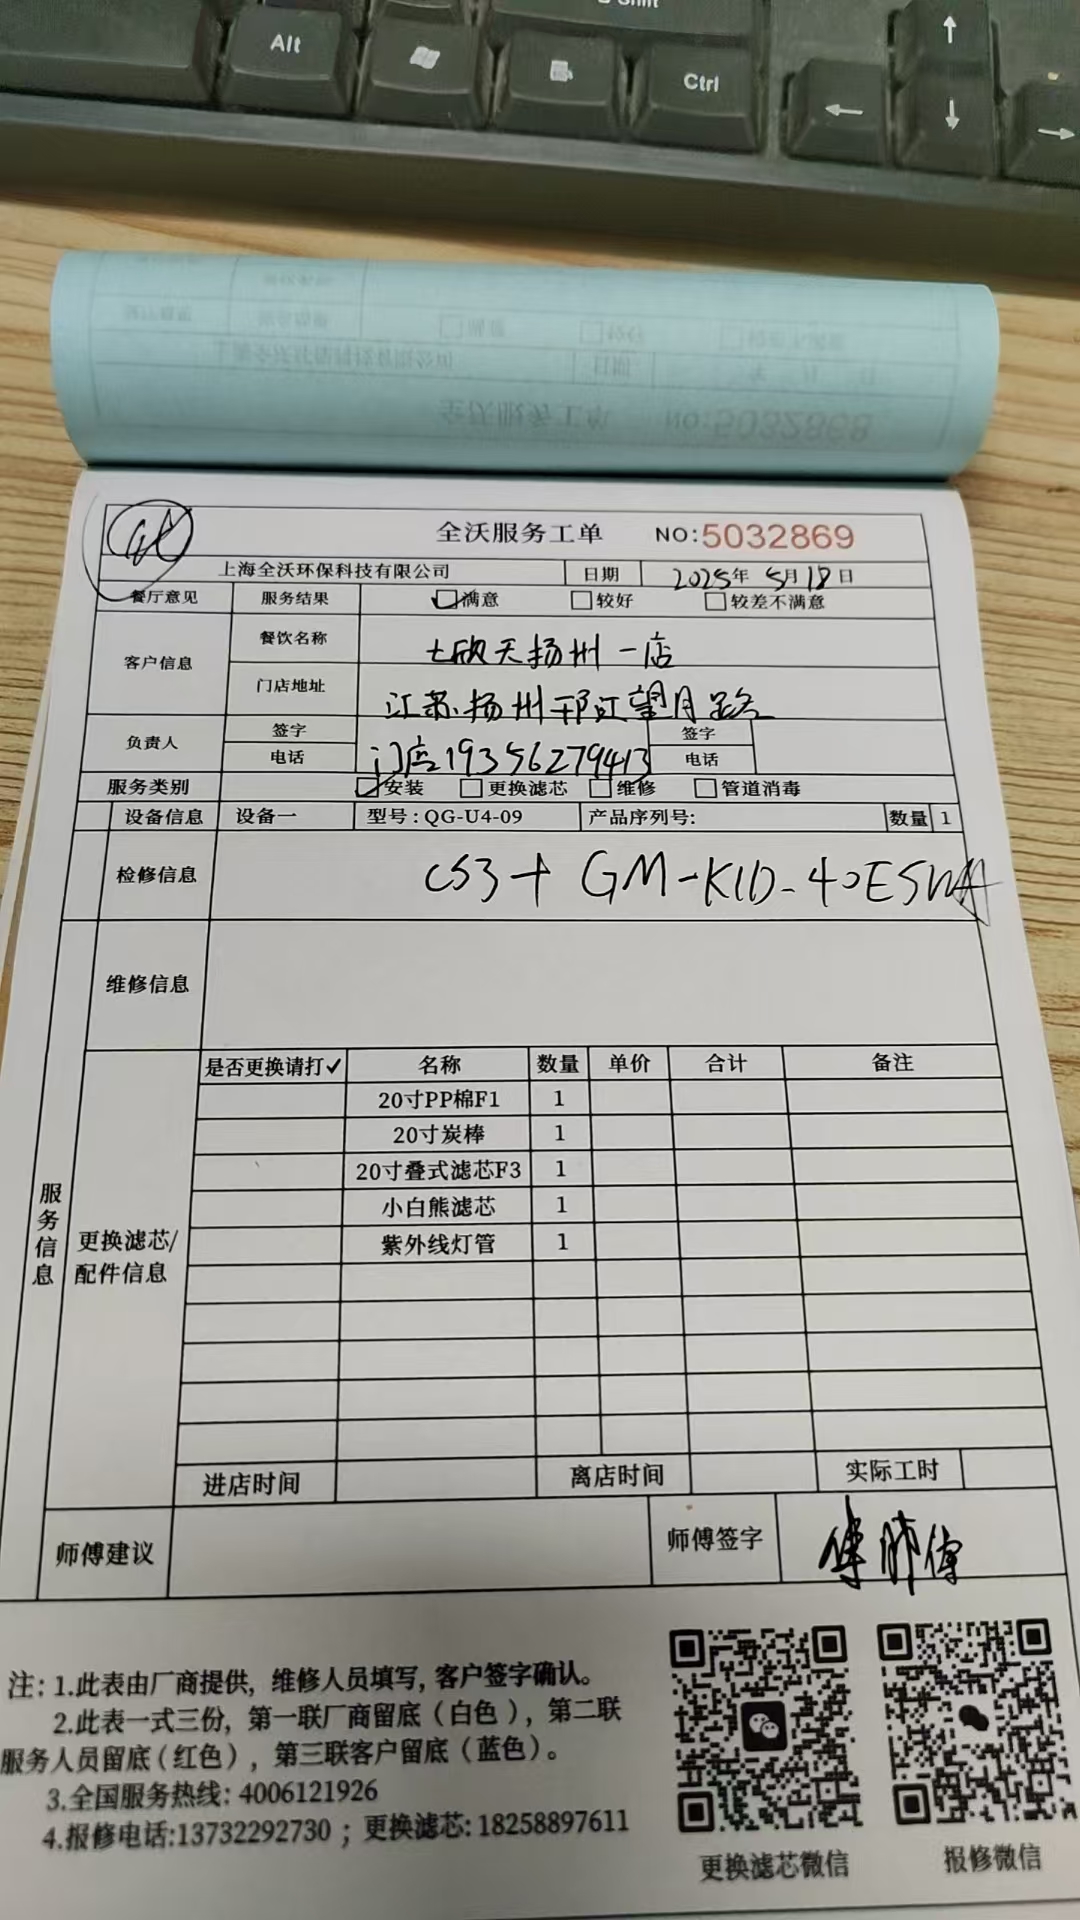 Shift
Alt
Ctrl
全沃服务工单 NO:5032868
全沃服务工单 NO:5032869
上海全沃环保科技有限公司 日期 2025年5月18日
餐厅意见 服务结果 满意 较好 较差不满意
客户信息 餐饮名称 七欣天扬州一店
门店地址 江苏扬州邗江望月路
负责人 签字 签字
电话 门店19356279413 电话
服务类别 安装 更换滤芯 维修 管道消毒
设备信息 设备一 型号:QG-U4-09 产品序列号: 数量 1
检修信息 CS3+GM-K10-40ESWA
维修信息
服务信息
更换滤芯/配件信息
是否更换请打✓ 名称 数量 单价 合计 备注
20寸PP棉F1 1
20寸炭棒 1
20寸叠式滤芯F3 1
小白熊滤芯 1
紫外线灯管 1
进店时间 离店时间 实际工时
师傅建议 师傅签字
注:1.此表由厂商提供,维修人员填写,客户签字确认。
2.此表一式三份,第一联厂商留底(白色),第二联
服务人员留底(红色),第三联客户留底(蓝色)。
3.全国服务热线:4006121926
4.报修电话:13732292730;更换滤芯:18258897611
更换滤芯微信 报修微信